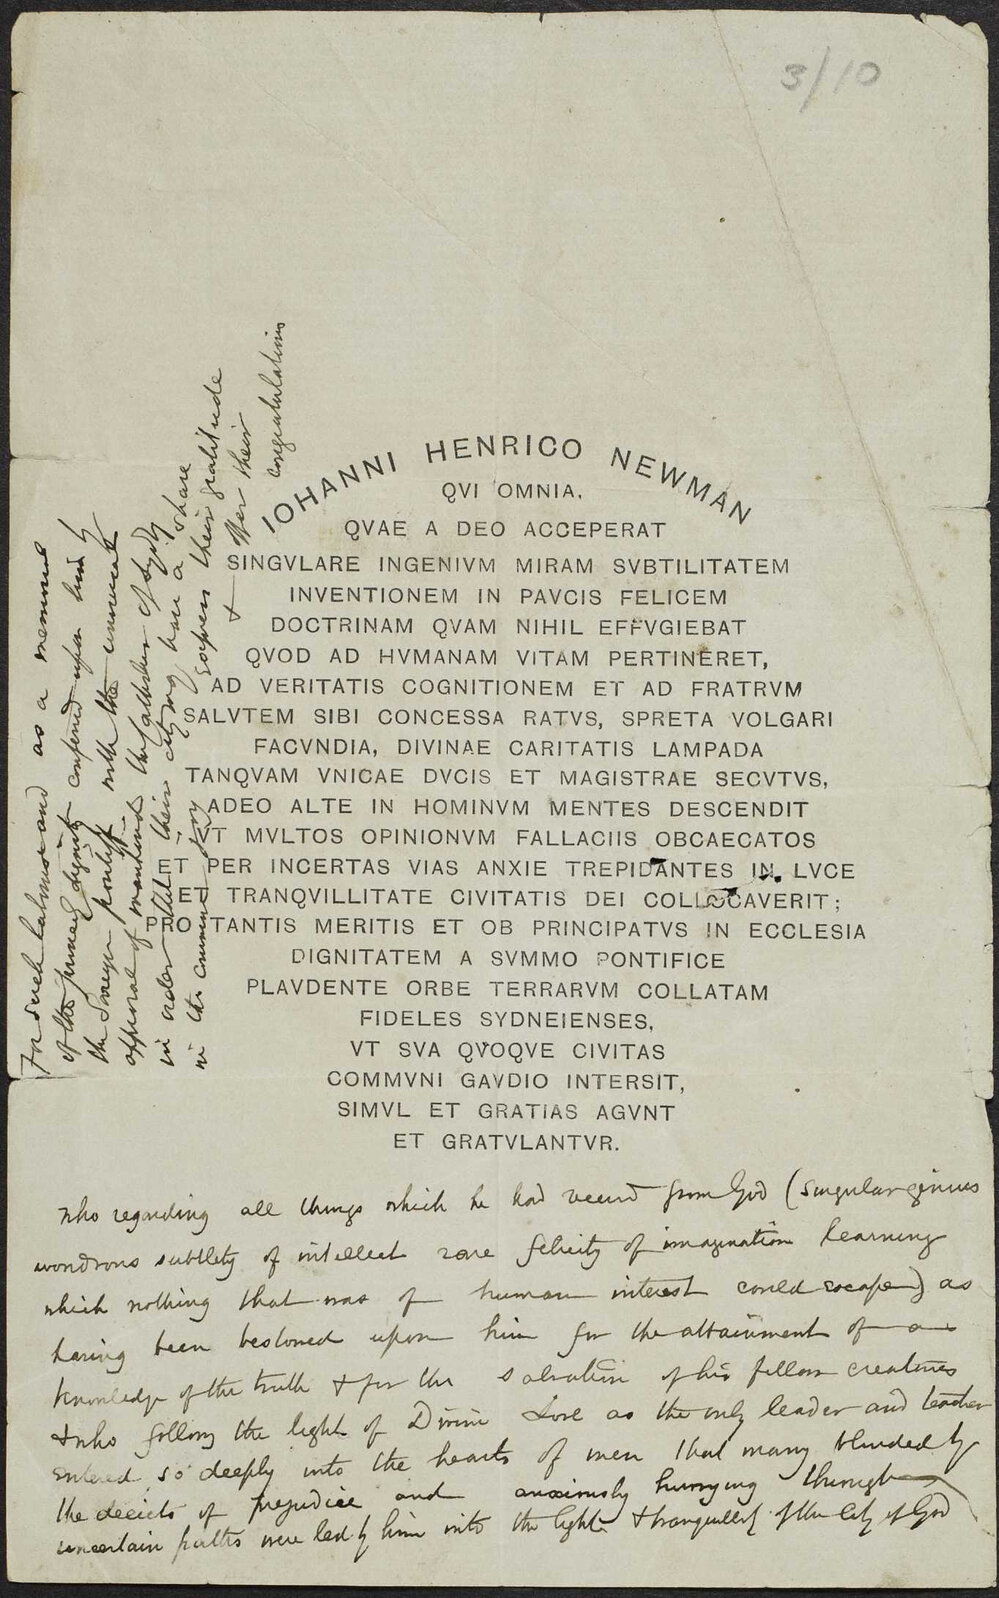 3/10
IOHANNI HENRICO NEWMAN
QVI OMNIA,
QVAE A DEO ACCEPERAT
SINGVLARE INGENIVM MIRAM SVBTILITATEM
INVENTIONEM IN PAVCIS FELICEM
DOCTRINAM QVAM NIHIL EFFVGIEBAT
QVOD AD HVMANAM VITAM PERTINERET,
AD VERITATIS COGNITIONEM ET AD FRATRVM
SALVTEM SIBI CONCESSA RATVS, SPRETA VOLGARI
FACVNDIA, DIVINAE CARITATIS LAMPADA
TANQVAM VNICAE DVCIS ET MAGISTRAE SECVTVS,
ADEO ALTE IN HOMINVM MENTES DESCENDIT
VT MVLTOS OPINIONVM FALLACIIS OBCAECATOS
ET PER INCERTAS VIAS ANXIE TREPIDANTES IN LVCE
ET TRANQVILLITATE CIVITATIS DEI COLLOCAVERIT;
PRO TANTIS MERITIS ET OB PRINCIPATVS IN ECCLESIA
DIGNITATEM A SVMMO PONTIFICE
PLAVDENTE ORBE TERRARVM COLLATAM
FIDELES SYDNEIENSES,
VT SVA QVOQVE CIVITAS
COMMVNI GAVDIO INTERSIT,
SIMVL ET GRATIAS AGVNT
ET GRATVLANTVR.
who regarding all things which he had received from God (singular genius
wondrous subtlety of intellect rare felicity of imagination learning
which nothing that was of human interest could escape) as
having been bestowed upon him for the attainment of a
knowledge of the truth & for the salvation of his fellow creatures
& who following the light of Divine Love as the only leader and teacher
entered so deeply into the hearts of men that many blinded by
the deceits of prejudice and anxiously hurrying through
uncertain paths were led by him into the light & tranquillity of the City of God
For such labours and as a memorial
of the princely dignity conferred upon him by
the Sovereign pontiff with the universal
approval of mankind the catholics of Sydney
in order that their city may have a share
in the common joy express their gratitude
& offer their
congratulations